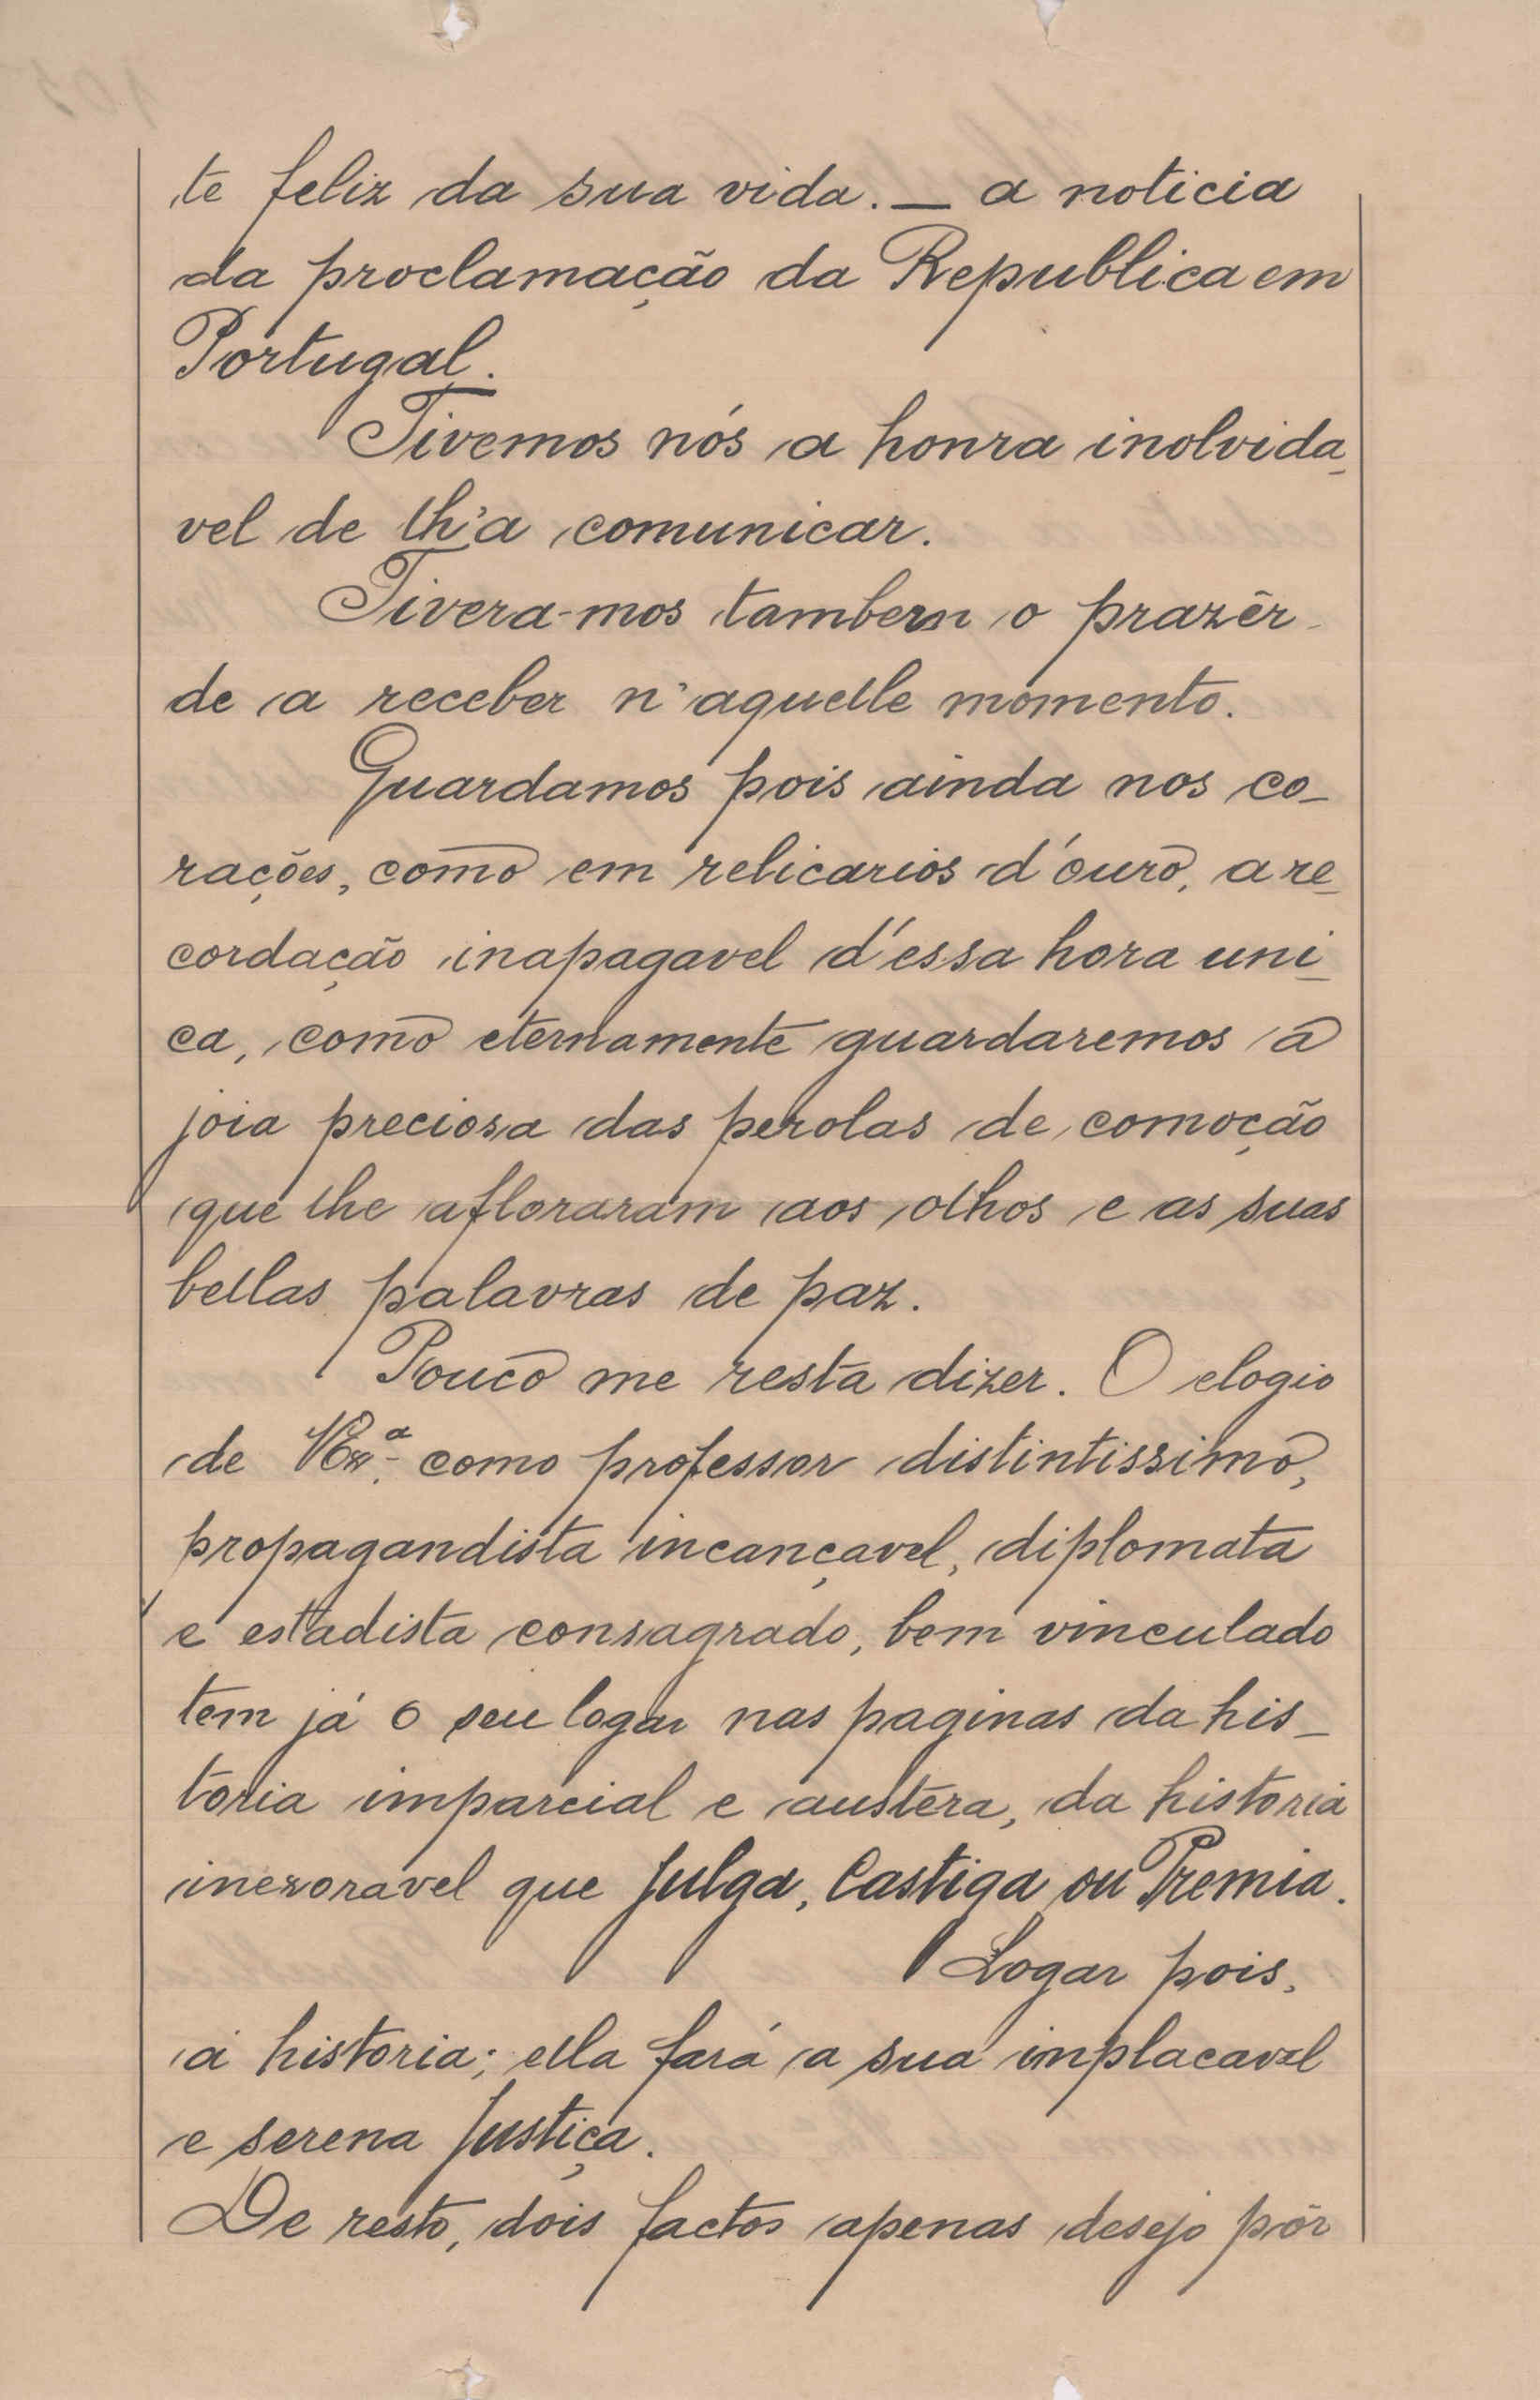 te feliz da sua vida. — a noticia
da proclamação da Republica em
Portugal.
Tivemos nós a honra inolvida-
vel de lh'a comunicar.
Tivera-mos tambem o prazêr
de a receber n'aquelle momento.
Guardamos pois ainda nos co-
rações, como em relicarios d'ouro, a re-
cordação inapagavel d'essa hora uni-
ca, como eternamente guardaremos a
joia preciosa das perolas de comoção
que lhe afloraram aos olhos e as suas
bellas palavras de paz.
Pouco me resta dizer. O elogio
de V Exª. como professor distintissimo,
propagandista incançavel, diplomata
e estadista consagrado, bem vinculado
tem já o seu logar nas paginas da his-
toria imparcial e austera, da historia
inexoravel que Julga, Castiga ou Premia.
Logar pois,
á historia; ella fará a sua inplacavel
e serena Justiça.
De resto, dois factos apenas desejo pôr